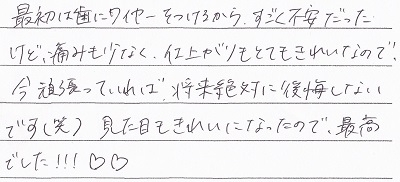 最初は歯にワイヤーをつけるから、すごく不安だった
けど、痛みも少なく、仕上がりもとてもきれいなので、
今頑張っていれば、将来絶対に後悔しない
です(笑) 見た目もきれいになったので、最高
でした!!! ♡♡